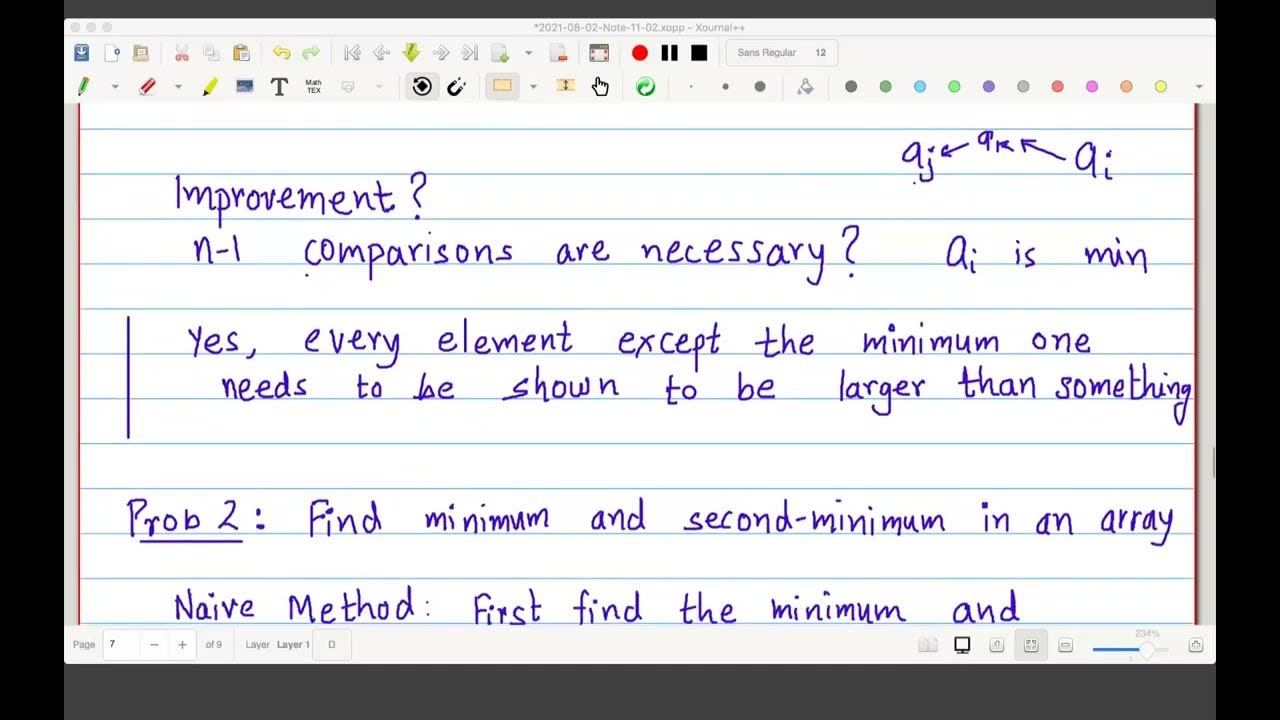 *2021-08-02-Note-11-02.xopp - Xournal++
Sans Regular 12
Math
TEX
aj ← ak ← ai
Improvement?
n-1 comparisons are necessary? ai is min
Yes, every element except the minimum one
needs to be shown to be larger than something
Prob 2: Find minimum and second-minimum in an array
Naive Method: First find the minimum and
Page 7 of 9 Layer Layer 1 D 234%